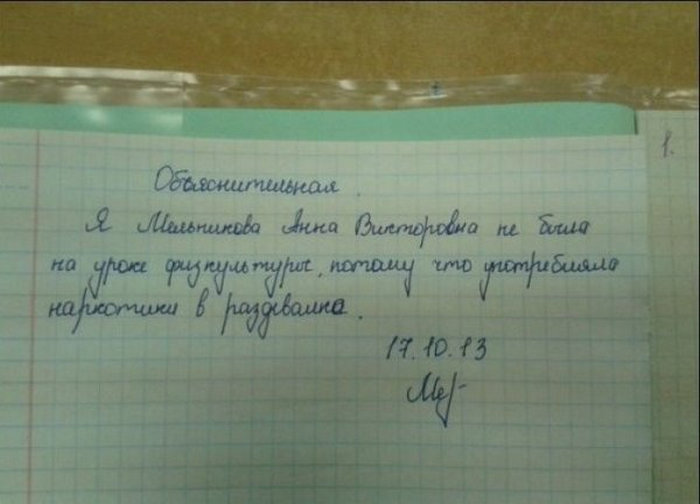 1.
Объяснительная.
Я Мельникова Анна Викторовна не была
на уроке физкультуры, потому что употребляла
наркотики в раздевалке.
17.10.13